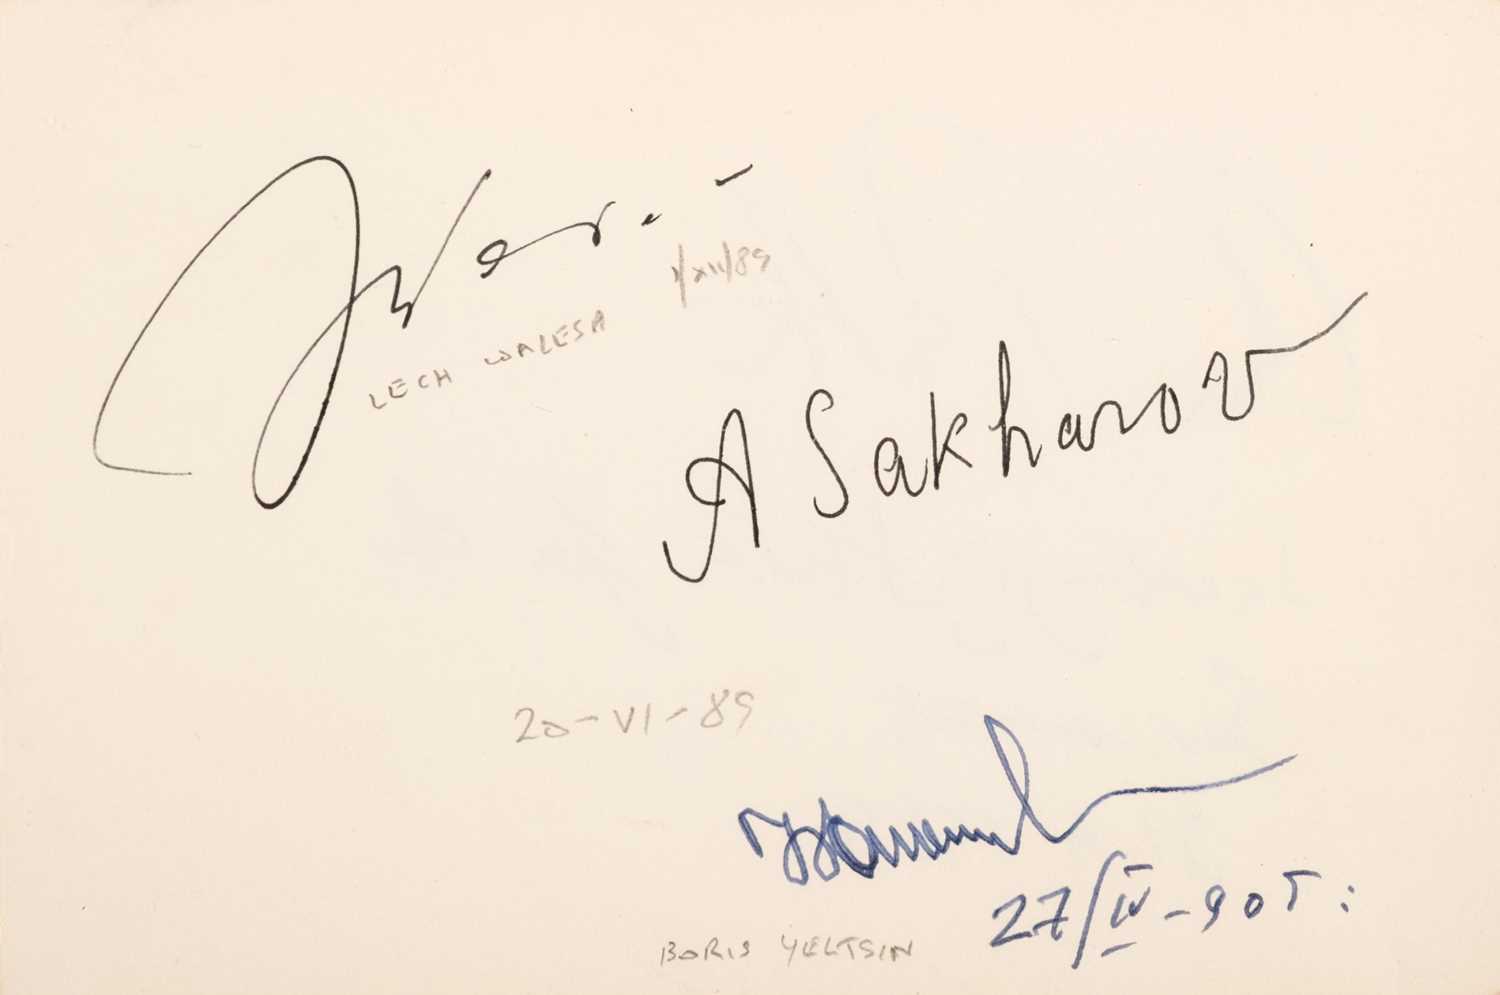 LECH WALESA 1/XII/89
A Sakharov
20-VI-89
27/IV-90г:
BORIS YELTSIN